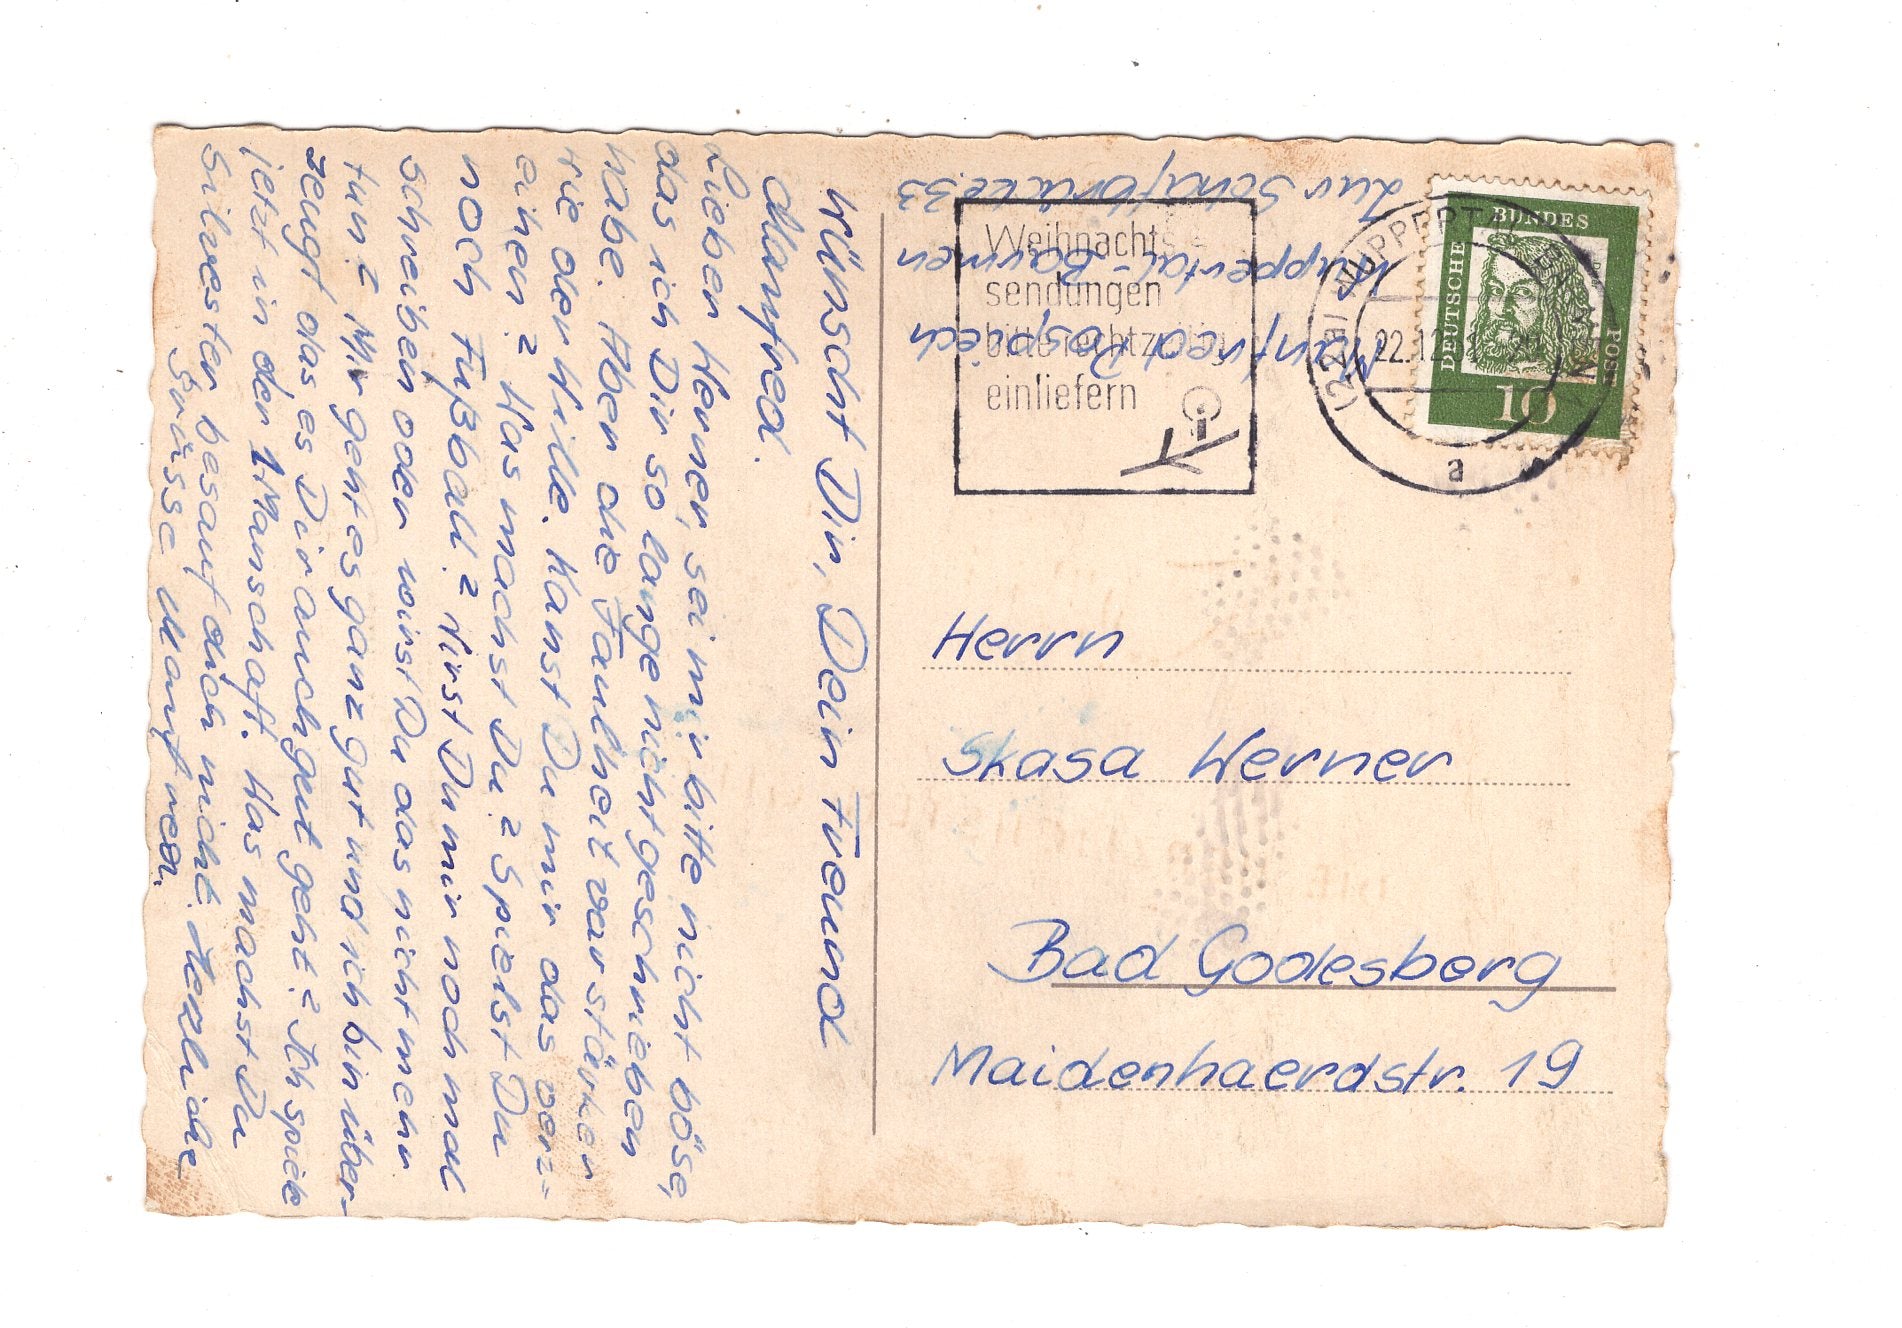 wünscht Dir, Dein Freund
Manfred.
Lieber Werner, sei mir bitte nicht böse,
das ich Dir so lange nicht geschrieben
habe. Aber die Faulheit war stärker
wie der Wille. Kanst Du mir das verz=
eihen? Was machst Du? Spielst Du
noch Fußball? Wirst Du mir noch mal
schreiben oder wirst Du das nicht mehr
tun? Mir geht es ganz gut und ich bin über-
zeugt das es Dir auch gut geht? Ich spiele
jetzt in der 1 Manschaft. Was machst Du
Silvester besauf dich nicht. Herzliche
Grüsse Manfred.
Manfred Pospiech
Wuppertal-Barmen
Zur Schafbrücke.33
Weihnachts-
sendungen
bitte rechtzeitig
einliefern
(22a) WUPPERTAL-BARMEN
22.12.
a
DEUTSCHE
BUNDES
POST
10
Herrn
Skasa Werner
Bad Godesberg
Maidenhaerdstr. 19